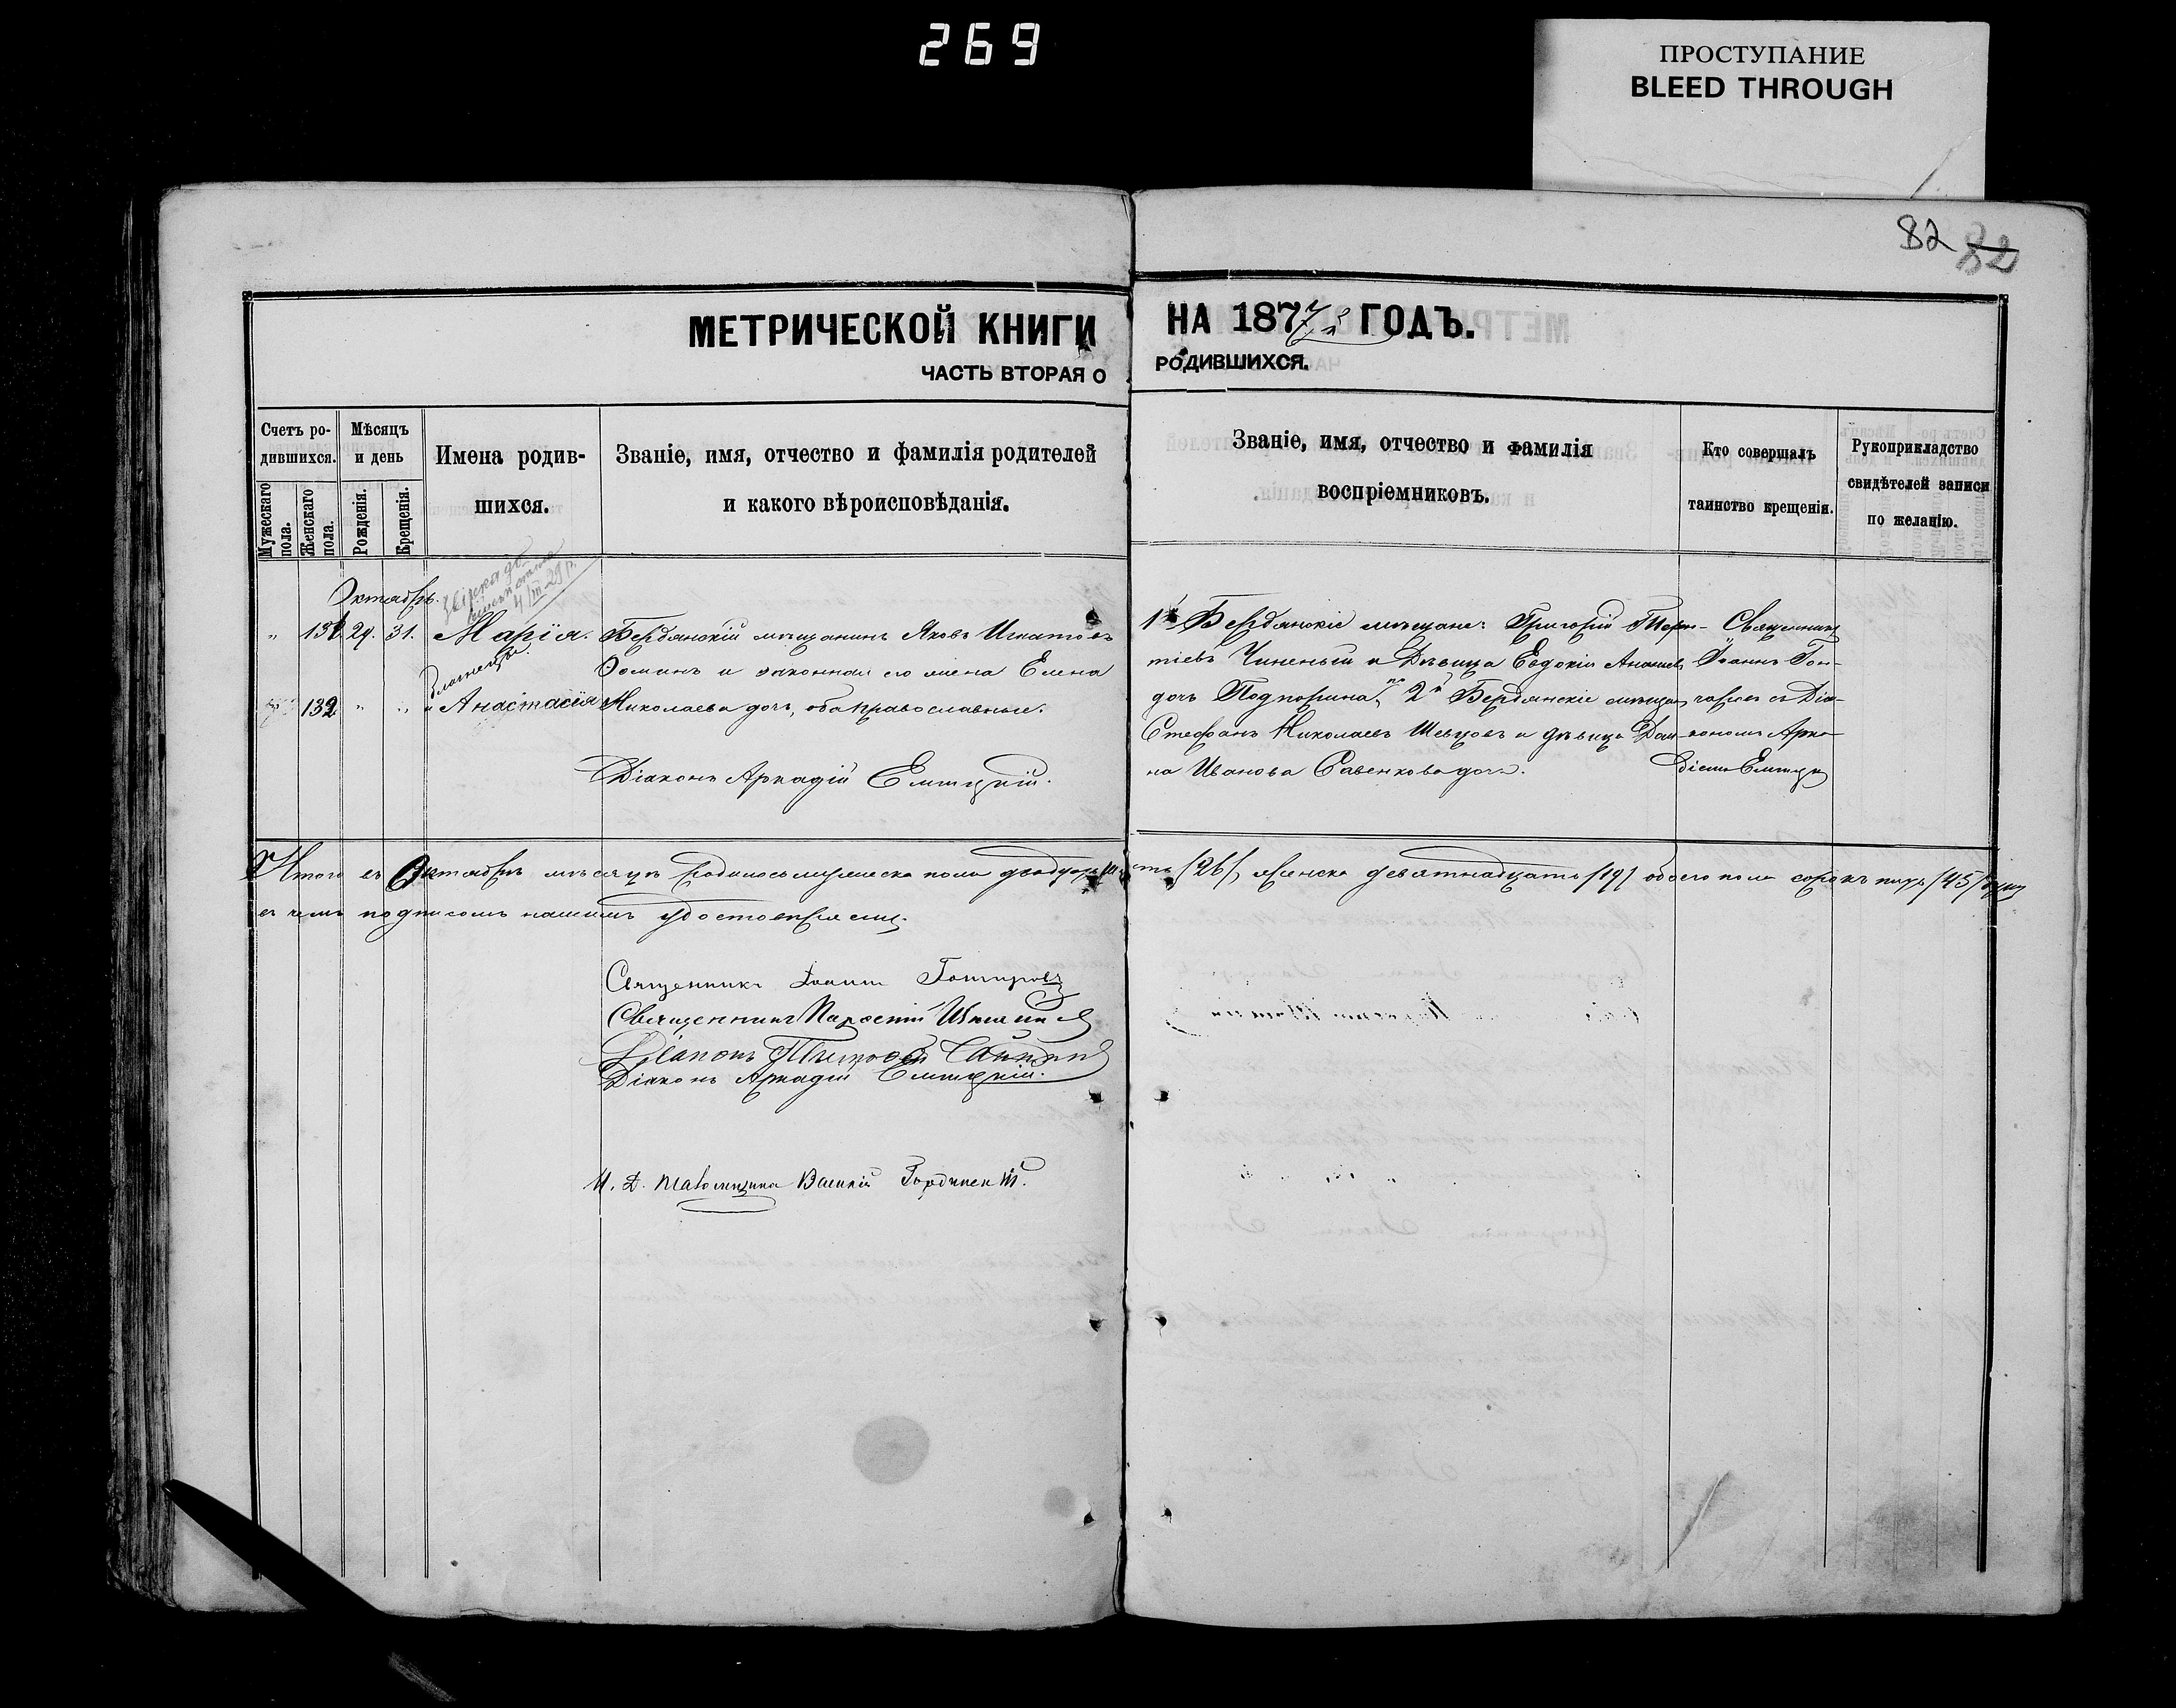 269
ПРОСТУПАНИЕ
BLEED THROUGH
82 82
МЕТРИЧЕСКОЙ КНИГИ НА 1877 ГОДЪ.
ЧАСТЬ ВТОРАЯ О РОДИВШИХСЯ.
Счетъ ро-
дившихся.
Мужескаго пола.
Женскаго пола.
Мѣсяцъ
и день
Рожденія.
Крещенія.
Имена родив-
шихся.
Званіе, имя, отчество и фамилія родителей
и какого вѣроисповѣданія.
Званіе, имя, отчество и фамилія
воспріемниковъ.
Кто совершалъ
таинство крещенія.
Рукоприкладство
свидѣтелей записи
по желанію.
Октябрь.
4/III-29 р.
" 131. 29. 31. Марія.
близнецы.
132 " " и Анастасія
Бердянскій мѣщанинъ Яковъ Игнатовъ
и законная его жена Елена
Николаева дочь, оба православные.
Діаконъ Аркадій
1й Бердянскіе мѣщане: Григорій
тіевъ и Дѣвица Евдокія
дочь 2й Бердянскіе
Стефанъ Николаевъ Шевцовъ и дѣвица Дом-
на Иванова Савенкова дочь.
Священникъ
Іоаннъ Гон-
чаровъ съ Діа-
кономъ Арка-
діемъ
Итого въ Октябрѣ мѣсяцѣ родилось мужеска пола двадцать шесть /26/, женска девятнадцать /19/ обоего пола сорокъ пять /45/ душъ
въ чемъ подписомъ нашимъ удостовѣряемъ.
Священникъ Іоаннъ Гончаровъ
Священникъ
Діаконъ
Діаконъ Аркадій
И. Д. Псаломщика Василій